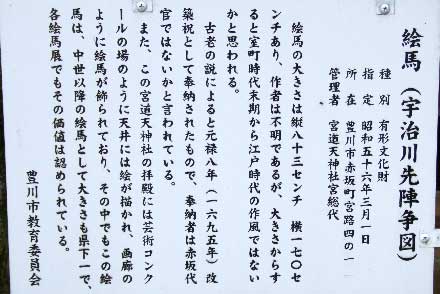 絵馬（宇治川先陣争図）
種別　有形文化財
指定　昭和五十六年三月一日
所在　豊川市赤坂町宮路四の一
管理者　宮道天神社宮総代
絵馬の大きさは縦八十三センチ　横一七〇セ
ンチあり、作者は不明であるが、大きさからす
ると室町時代末期から江戸時代の作風ではない
かと思われる。
古老の説によると元禄八年（一六九五年）改
築祝として奉納されたもので、奉納者は赤坂代
官ではないかと言われている。
また、この宮道天神社の拝殿には芸術コンク
ールの場のように天井には絵が描かれ、画廊の
ように絵馬が飾られており、その中でもこの絵
馬は、中世以降の絵馬として大きさも県下一で、
各絵馬展でもその価値は認められている。
豊川市教育委員会